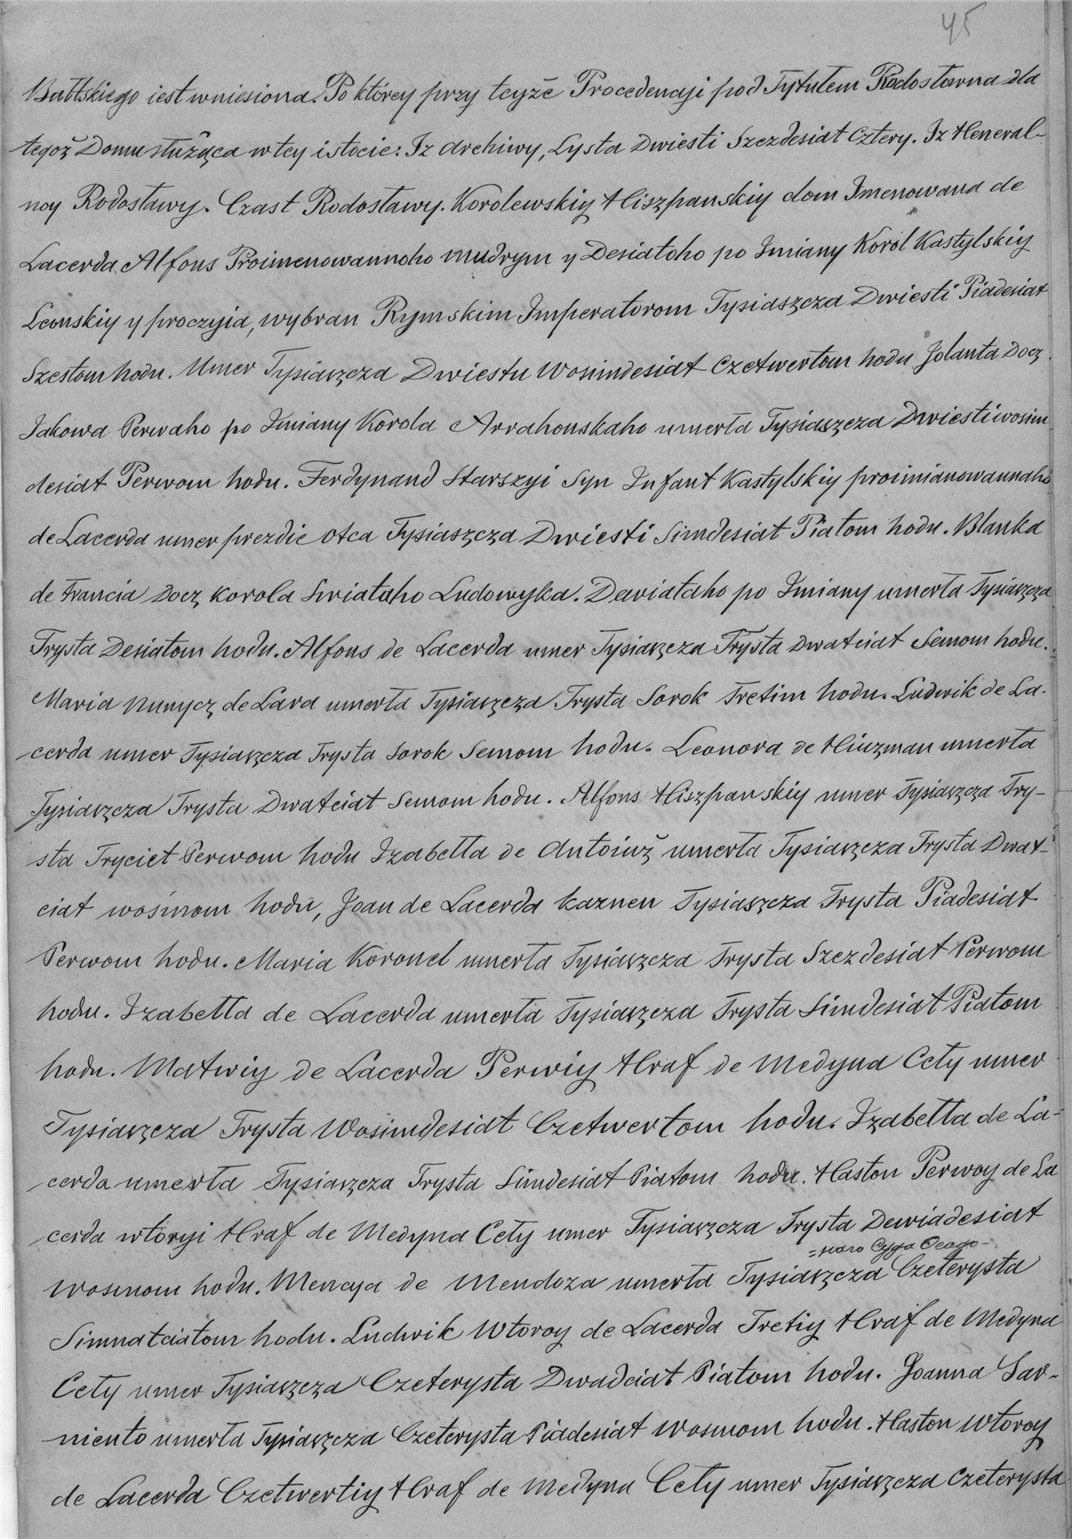 45
Bałtskiego iest wniesiona. Po którey przy teyże Procedencji pod Tytułem Rodosławna dla
tegoż Domu służąca w tey istocie: Iz Archiwy, Lysta Dwiesti Szezdesiat Cztery. Iz Heneral-
noy Rodosławy. Czast Rodosławy. Korolewskiy Hiszpanskiy dom Imenowana de
Lacerda Alfons Proimenowannoho mudrym y Desiatoho po Imiany Korol Kastylskiy
Leonskiy y proczyia, wybran Rymskim Imperatorom Tysiaszcza Dwiesti Piadesiat
Szestom hodu. Umer Tysiaszcza Dwiestu Wosimdesiat Czetwertom hodu Jolanta Docz
Jakowa Perwaho po Imiany Korola Arrahonskaho umerła Tysiaszcza Dwiesti wosim
desiat Perwom hodu. Ferdynand Starszyi Syn Infant Kastylskiy proimianowannaho
de Lacerda umer prezdie otca Tysiaszcza Dwiesti Simdesiat Piatom hodu. Blanka
de Francia Docz Korola Swiataho Ludowyka. Dewiataho po Imiany umerła Tysiaszcza
Trysta Desiatom hodu. Alfons de Lacerda umer Tysiaszcza Trysta Dwatciat Semom hodu.
Maria Nunycz de Lara umerła Tysiaszcza Trysta Sorok Tretim hodu. Ludwik de La-
cerda umer Tysiaszcza Trysta Sorok Semom hodu. Leonora de Hiuzman umerła
Tysiaszcza Trysta Dwatciat Semom hodu. Alfons Hiszpanskiy umer Tysiaszcza Try-
sta Tryciet Perwom hodu Izabella de Antoiuż umerła Tysiaszcza Trysta Dwat-
ciat wosmom hodu, Joan de Lacerda kaznen Tysiaszcza Trysta Piadesiat
Perwom hodu. Maria Koronel umerła Tysiaszcza Trysta Szezdesiat Perwom
hodu. Izabella de Lacerda umerła Tysiaszcza Trysta Simdesiat Piatom
hodu. Matwiy de Lacerda Perwiy Hraf de Medyna Cely umer
Tysiaszcza Trysta Wosimdesiat Czetwertom hodu. Izabella de La-
cerda umerła Tysiaszcza Trysta Simdesiat Piatom hodu. Haston Perwoy de La
cerda wtoryi Hraf de Medyna Cely umer Tysiaszcza Trysta Dewiadesiat
=наго Суда
Wosmom hodu. Mencya de Mendoza umerła Tysiaszcza Czeterysta
Simnatciatom hodu. Ludwik Wtoroy de Lacerda Tretiy Hraf de Medyna
Cely umer Tysiaszcza Czeterysta Dwadciat Piatom hodu. Joanna Sar-
niento umerła Tysiaszcza Czeterysta Piadesiat Wosmom hodu. Haston Wtoroy
de Lacerda Czetwertiy Hraf de Medyna Cely umer Tysiaszcza Czeterysta